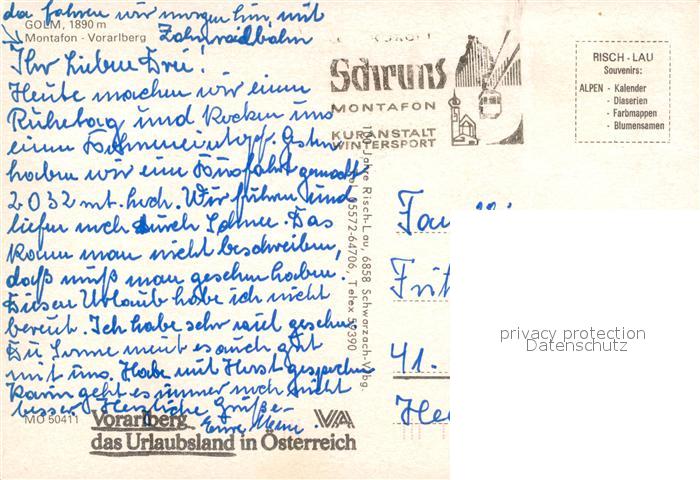 da fahren wir morgen hin, mit
GOLM, 1890 m
Montafon - Vorarlberg
Zahnradbahn
Ihr Lieben Drei!
Heute machen wir einen
Ruhetag und kochen uns
einen
haben wir eine Busfahrt gemacht
2032 mt. hoch. Wir fuhren und
liefen noch durch Schnee. Das
kann man nicht beschreiben,
daß muß man gesehen haben.
Diesen Urlaub habe ich nicht
bereut. Ich habe sehr viel gesehn.
Die Sonne meint es auch gut
mit uns. Habe mit Horst gesprochen
Karin geht es immer noch nicht
besser. Herzliche Grüße
Eure
MO 50411
Vorarlberg
das Urlaubsland in Österreich
VA
Schruns
MONTAFON
KURANSTALT
WINTERSPORT
Jahre Risch-Lau, 6858 Schwarzach-Vbg.
05572-64706, Telex 59390
RISCH - LAU
Souvenirs:
ALPEN - Kalender
- Diaserien
- Farbmappen
- Blumensamen
41.
privacy protection
Datenschutz